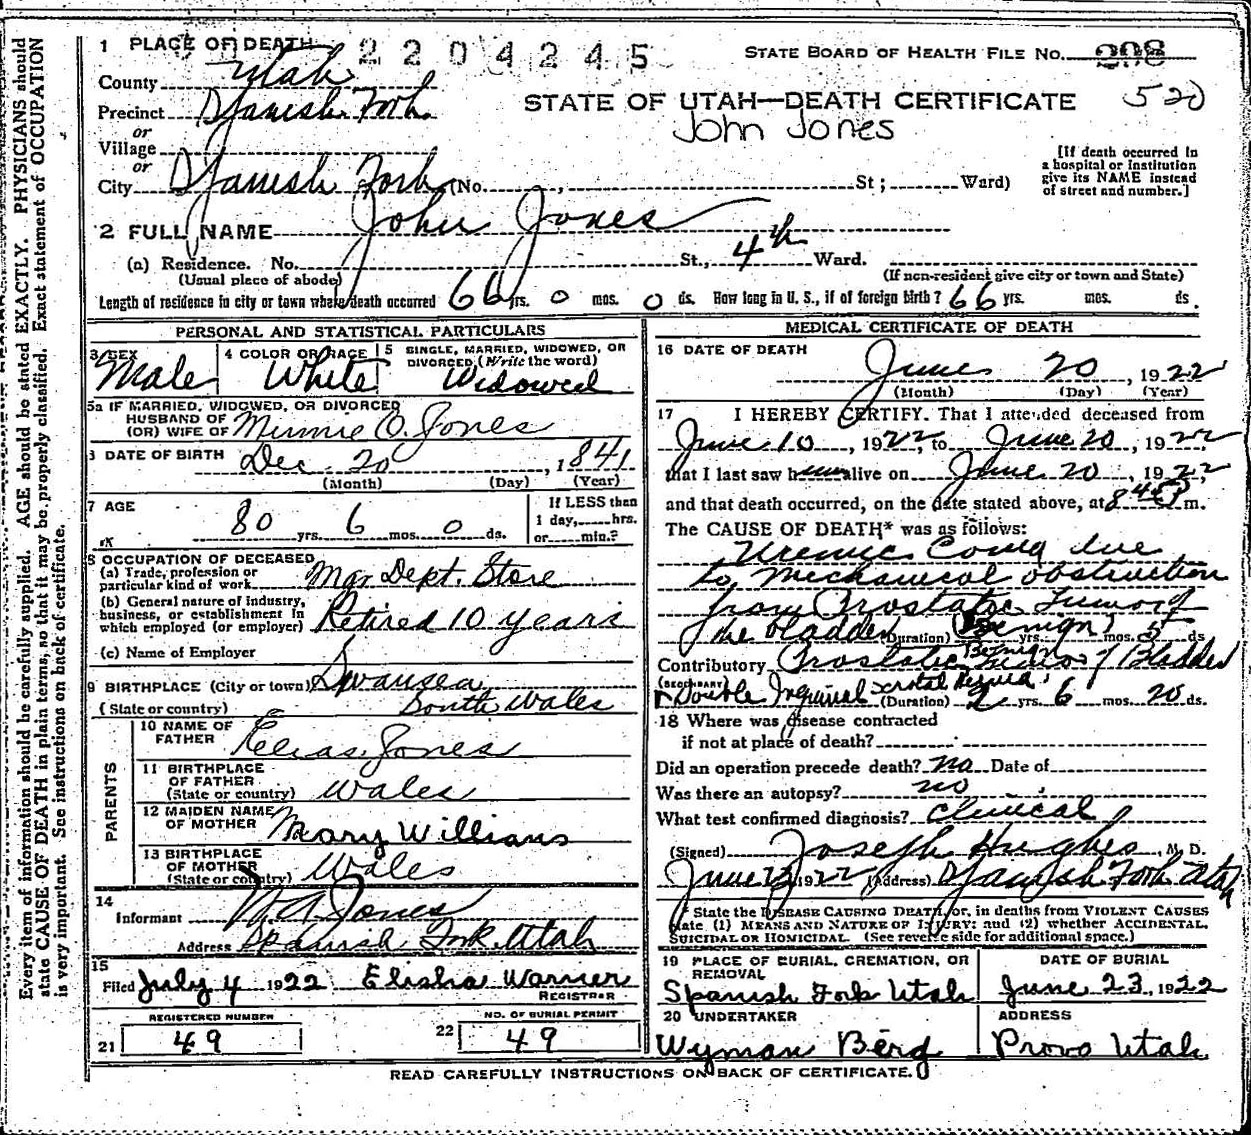 1 PLACE OF DEATH 2 2 0 4 2 4 5 STATE BOARD OF HEALTH FILE NO. 298
County Utah
Precinct Spanish Fork STATE OF UTAH—DEATH CERTIFICATE 520
or John Jones
Village
or
City Spanish Fork (No. , St; Ward)
[If death occurred in
a hospital or institution
give its NAME instead
of street and number.]
2 FULL NAME John Jones
(a) Residence. No. St., 4th Ward.
(Usual place of abode) (If non-resident give city or town and State)
Length of residence in city or town where death occurred 66 yrs. 0 mos. 0 ds. How long in U. S., if of foreign birth? 66 yrs. mos. ds.
PERSONAL AND STATISTICAL PARTICULARS
3 SEX 4 COLOR OR RACE 5 SINGLE, MARRIED, WIDOWED, OR
DIVORCED (Write the word)
Male White Widowed
5a IF MARRIED, WIDOWED, OR DIVORCED
HUSBAND OF
(OR) WIFE OF Minnie O. Jones
DATE OF BIRTH Dec. 20, 1841
(Month) (Day) (Year)
7 AGE If LESS than
80 yrs. 6 mos. 0 ds. 1 day, hrs.
or min.?
8 OCCUPATION OF DECEASED
(a) Trade, profession or
particular kind of work Mgr. Dept. Store
(b) General nature of industry,
business, or establishment in
which employed (or employer) Retired 10 years
(c) Name of Employer
9 BIRTHPLACE (City or town) Swansea
(State or country) South Wales
PARENTS
10 NAME OF
FATHER Elias Jones
11 BIRTHPLACE
OF FATHER
(State or country) Wales
12 MAIDEN NAME
OF MOTHER Mary Williams
13 BIRTHPLACE
OF MOTHER
(State or country) Wales
14
Informant W A Jones
Address Spanish Frk. Utah
15
Filed July 4 1922 Elisha Warner
REGISTRAR
REGISTERED NUMBER NO. OF BURIAL PERMIT
21 49 22 49
MEDICAL CERTIFICATE OF DEATH
16 DATE OF DEATH
June 20, 1922
(Month) (Day) (Year)
17 I HEREBY CERTIFY. That I attended deceased from
June 10, 1922, to June 20, 1922
that I last saw him alive on June 20, 1922,
and that death occurred, on the date stated above, at 8 45 P m.
The CAUSE OF DEATH* was as follows:
Uremic Coma due
to Mechanical obstruction
from Prostatic Tumor of
the bladder (Duration) (Benign) yrs. mos. 5 ds
Contributory Prostatic Benign Tumor of Bladder
(SECONDARY)
Double Inguinal Scrotal Hernia (Duration) 2 yrs. 6 mos. 20 ds.
18 Where was disease contracted
if not at place of death?
Did an operation precede death? no Date of
Was there an autopsy? no
What test confirmed diagnosis? Clinical
(Signed) Joseph Hughes, M. D.
June 1922 (Address) Spanish Fork Utah
* State the DISEASE CAUSING DEATH, or, in deaths from VIOLENT CAUSES
state (1) MEANS AND NATURE OF INJURY; and (2) whether ACCIDENTAL,
SUICIDAL OR HOMICIDAL. (See reverse side for additional space.)
19 PLACE OF BURIAL, CREMATION, OR
REMOVAL DATE OF BURIAL
Spanish Fork Utah June 23, 1922
20 UNDERTAKER ADDRESS
Wyman Berg Provo Utah
READ CAREFULLY INSTRUCTIONS ON BACK OF CERTIFICATE.
Every item of information should be carefully supplied. AGE should be stated EXACTLY. PHYSICIANS should
state CAUSE OF DEATH in plain terms, so that it may be properly classified. Exact statement of OCCUPATION
is very important. See instructions on back of certificate.